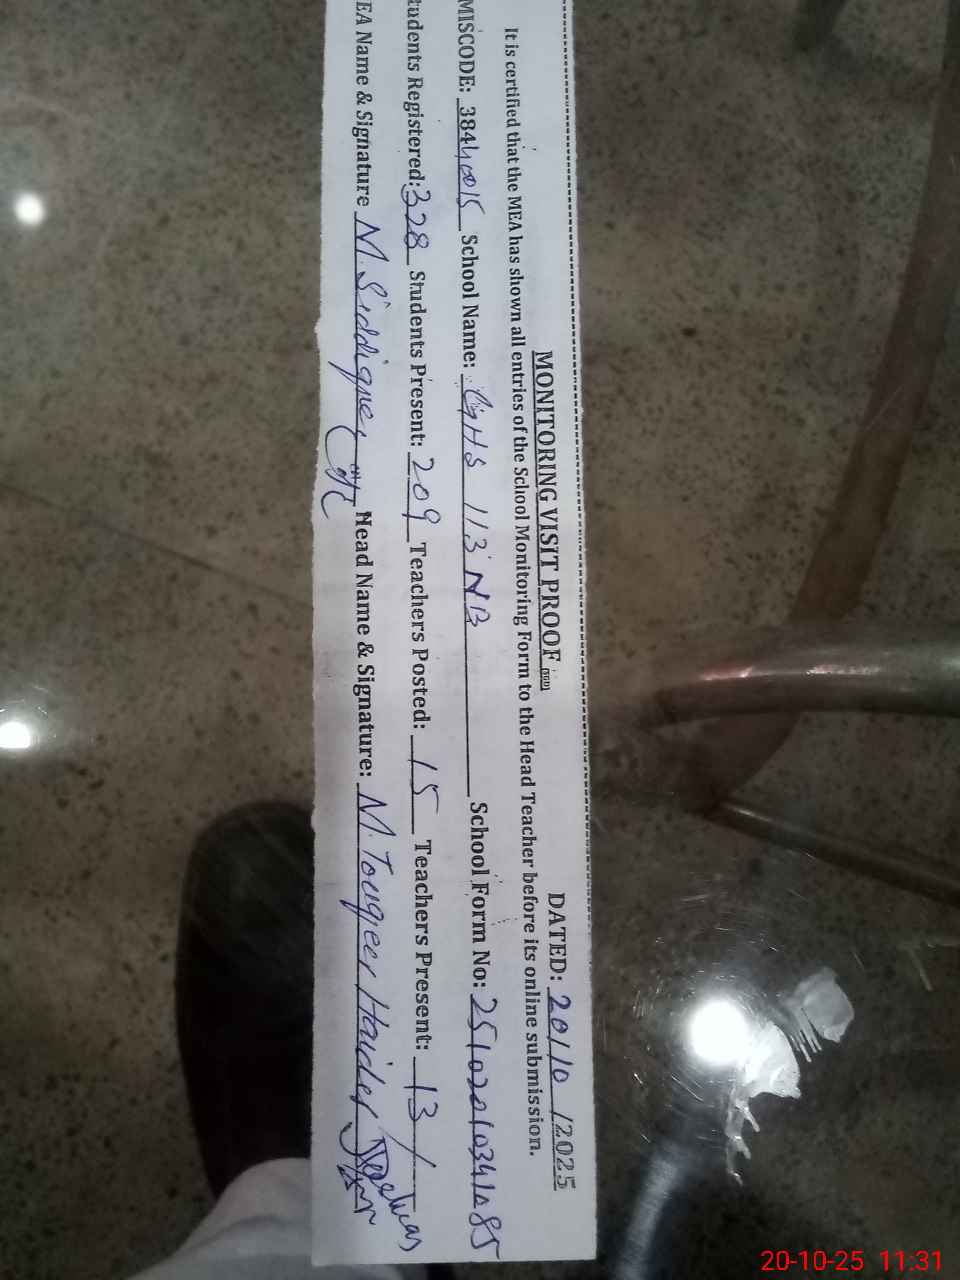 MONITORING VISIT PROOF DATED: 20/10/2025
It is certified that the MEA has shown all entries of the School Monitoring Form to the Head Teacher before its online submission.
MISCODE: 38440015 School Name: GHS 113 NB School Form No:
tudents Registered: 328 Students Present: 209 Teachers Posted: 15 Teachers Present: 13
EA Name & Signature M. Siddique Head Name & Signature: M. Touqeer Haider
20-10-25 11:31